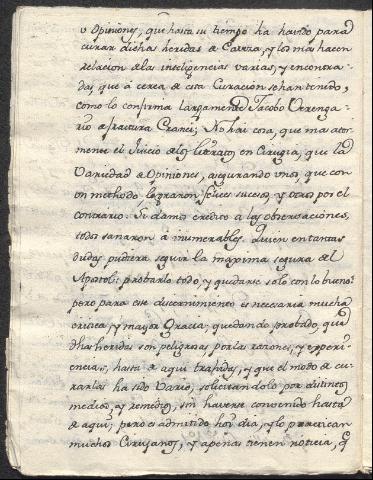 u Opiniones, que hasta su tiempo ha havido para
curar dichas heridas de Caveza, y los mas hacen
relacion de las inteligencias varias, y encontra-
das, que à cerca de esta Curacion se han tenido,
como lo confirma largamente Jacobo Verenga-
rio de fractura Cranei; No hai cosa, que mas ator-
mente el Juicio de los literatos en Cirugia, que la
Variedad de Opiniones, asegurando unos, que con
un methodo lograron felices sucesos, y otros por el
contrario. Si damos credito a las observaciones,
todos sanaron à inumerables. Quien en tantas
dudas pudiera seguir la maxima segura del
Apostol: probarlo todo, y quedarse solo con lo bueno:
pero para ese discernimiento es necesaria mucha
critica, y mayor Gracia; quedando probado, que
dhas heridas son peligrosas, por las razones, y experi-
encias, hasta de aqui trahidas, y que el modo de cu-
rarlas ha sido Vario, solicitandolo por distintos
medios, y remedios, sin haverse convenido hasta
de aqui; pero es admitido hoy dia, y lo practican
muchos Cirujanos, y apenas tienen noticia, q